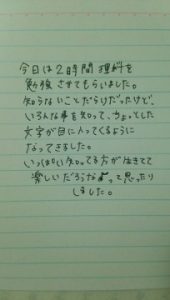 今日は2時間理科を
勉強させてもらいました。
知らないことだらけだったけど、
いろんな事を知って、ちょっとした
文字が目に入ってくるように
なってきました。
いっぱい知ってる方が生きてて
楽しいだろうな〜って思ったり
しました。